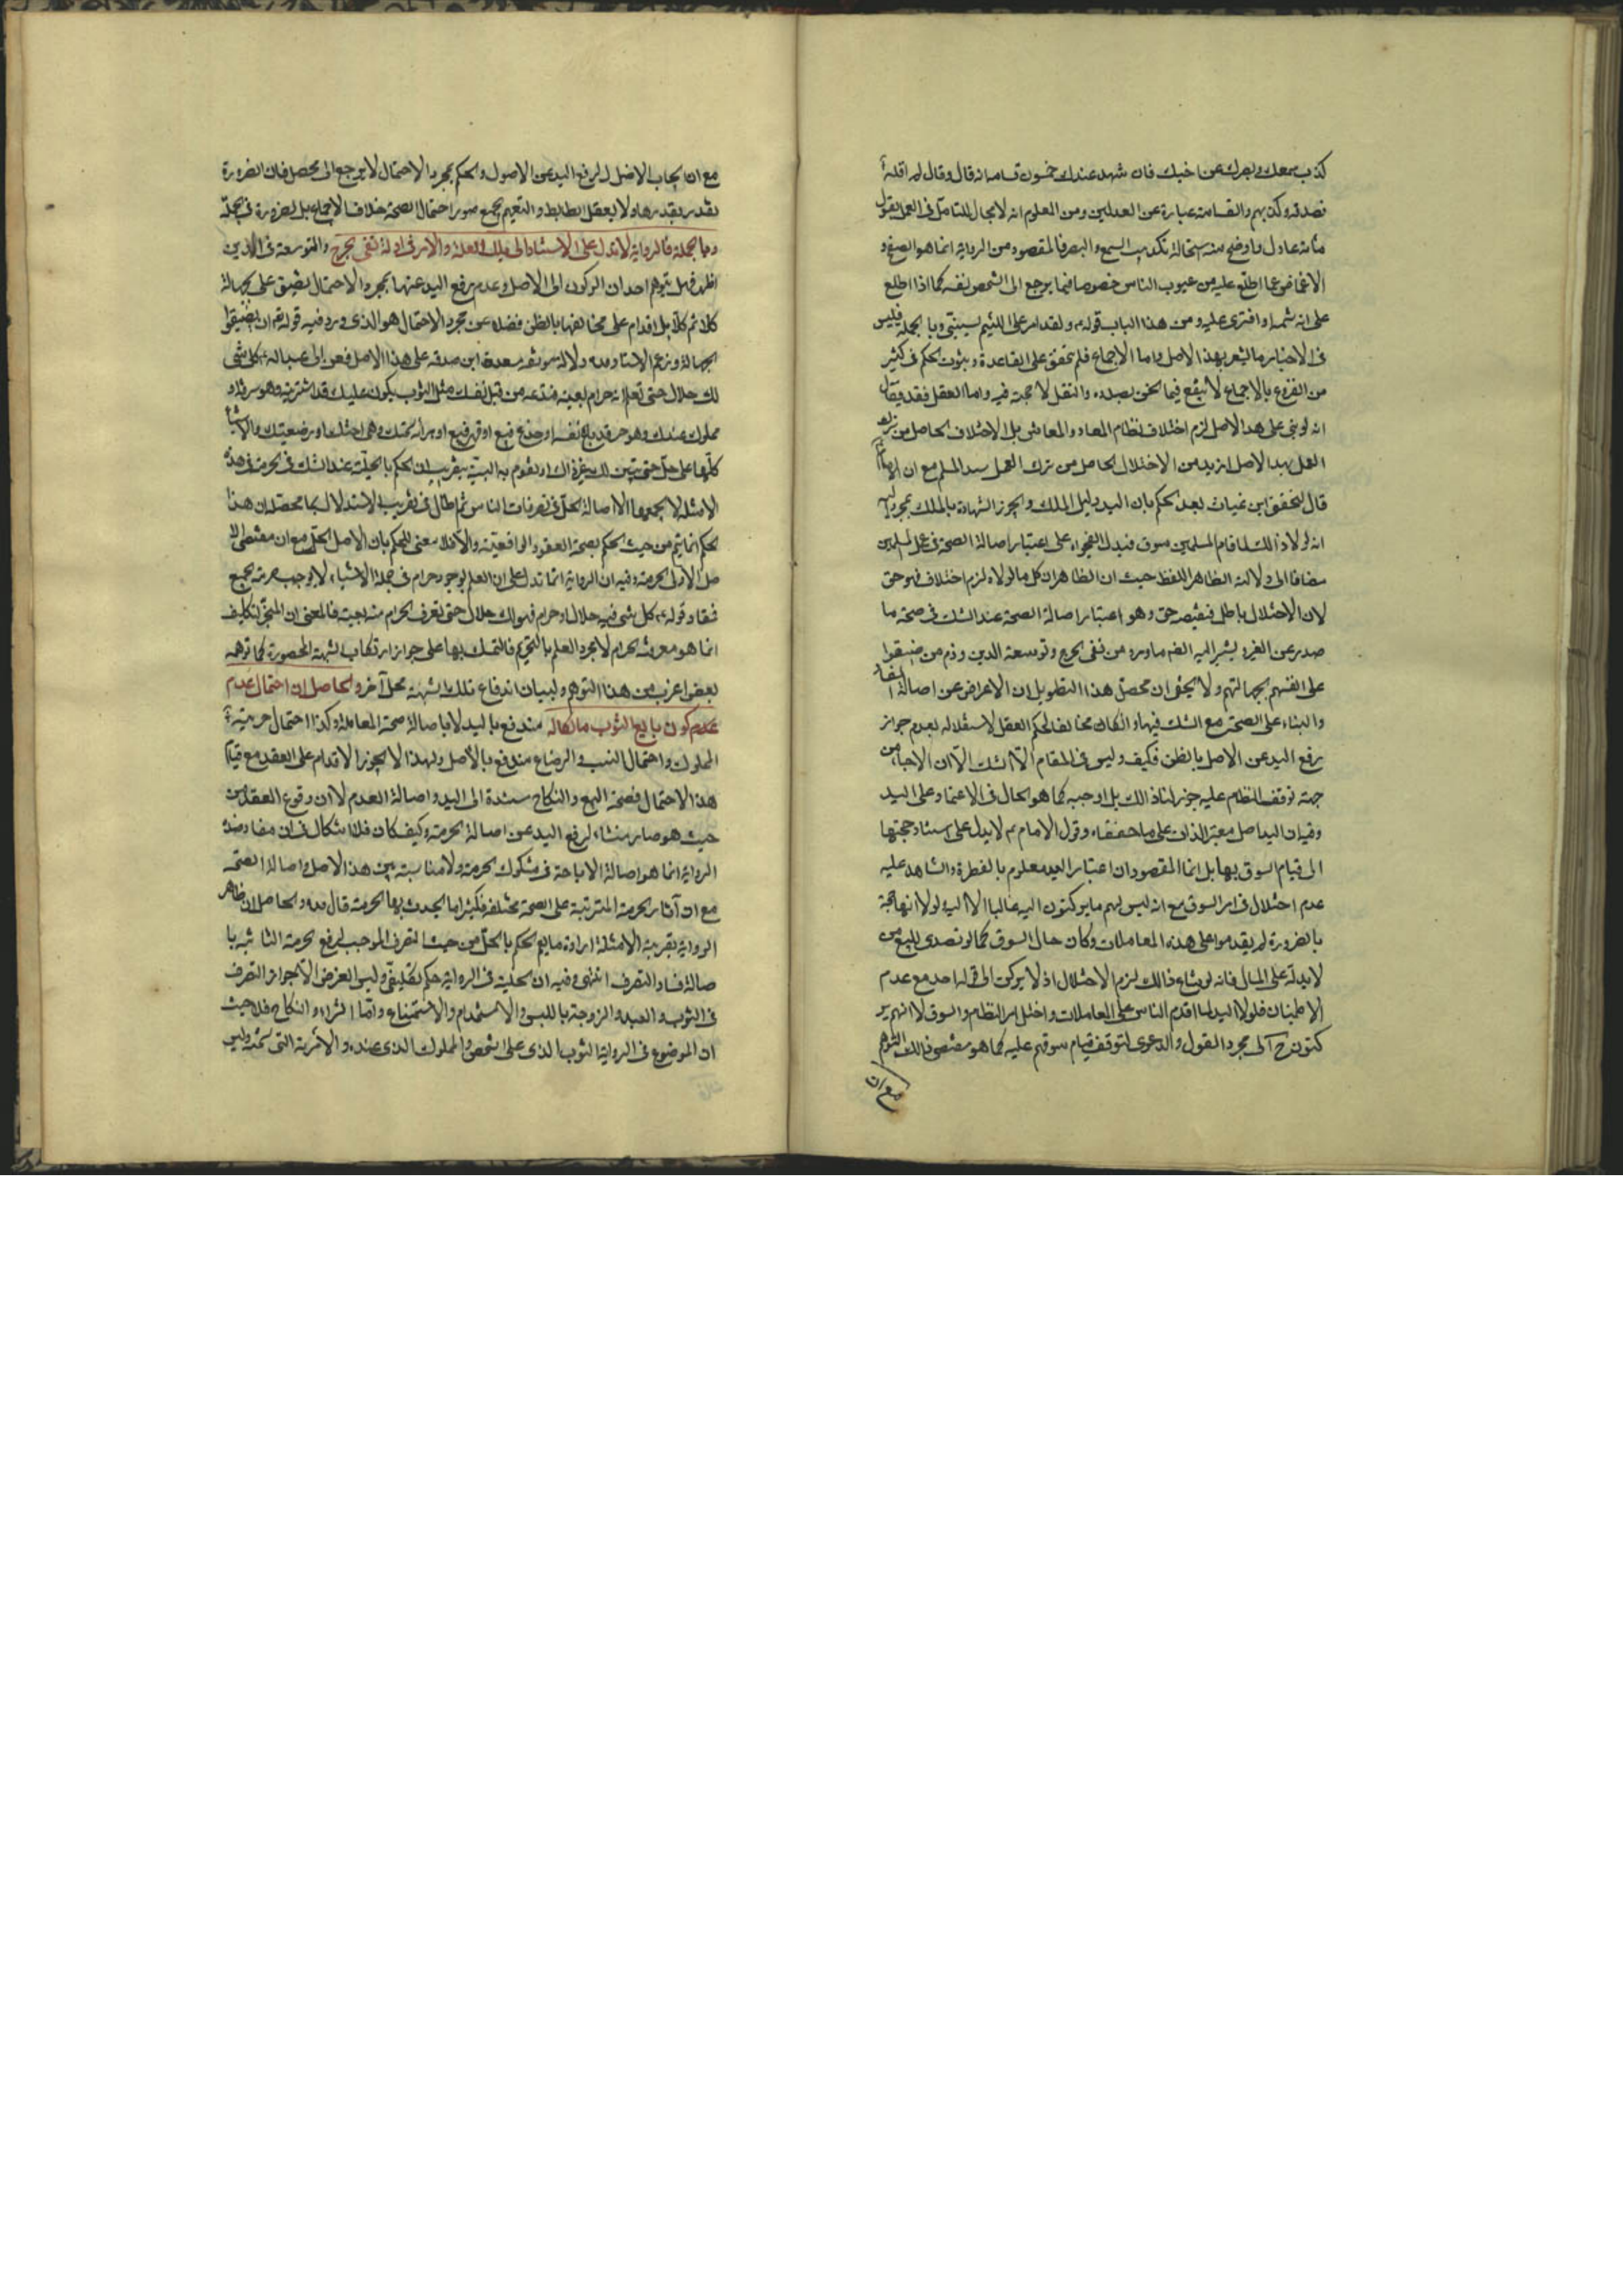 كذب سمعك وبصرك عن اخيك فان شهد عندك خمسون قسامه انه قال وقال لم اقله
فصدقه وكذبهم والقسامة عبارة عن العدلين ومن المعلوم انه لا مجال للتامل في العمل بقول
مائة عادل واوضح منه استحالة تكذيب السمع والبصر فالمقصود من الرواية انما هو الصفح و
الاغماض عما اطلع عليه من عيوب الناس خصوصا فيما يرجع الى الشخص نفسه كما اذا اطلع
على انه شتمه او افترى عليه ومن هذا الباب قوله ولقد امر على اللئيم يسبني وبالجملة فليس
في الاخبار ما يشعر بهذا الاصل واما الاجماع فلم يتحقق على القاعدة وثبوت الحكم في كثير
من الفروع بالاجماع لا ينفع فيما نحن بصدده والنقل لا حجة فيه واما العقل فقد يقال
انه لو بنى على هذا الاصل لزم اختلاف نظام المعاد والمعاش بل الاختلاف الحاصل من ترك
العمل بهذا الاصل ازيد من الاختلال الحاصل من ترك العمل بيد المسلم مع ان الامام
قال لحفص ابن غياث بعد الحكم بان اليد دليل الملك ويجوز الشهادة بالملك بمجرد اليد
انه لولا ذالك لما قام للمسلمين سوق فيدل الفحواء على اعتبار اصالة الصحة في عمل المسلمين
مضافا الى دلالة الظاهر اللفظ حيث ان الظاهر ان كل ما لولاه لزم اختلاف فهو حق
لان الاختلال باطل فنقيضه حق وهو اعتبار اصالة الصحة عند الشك في صحة ما
صدر عن الغير ويشير اليه الضم ما ورد من نفي الحرج وتوسعة الدين وذم من ضيقوا
على انفسهم بجهالتهم ولا يخفى ان محصل هذا التطويل ان الاعراض عن اصالة الفساد
والبناء على الصحة مع الشك فيها وان كان مخالفا لحكم العقل لاستقلاله بعدم جواز
رفع اليد عن الاصل بالظن فكيف وليس في المقام الا الشك الا ان الاجاء من
جهة توقف النظام عليه جوز لنا ذالك بل اوجبه كما هو الحال في الاعتماد على اليد
وفيه ان اليد اصل معتبر لذاته على ما حققناه وقول الامام ع لا يدل على استناد حجيتها
الى قيام السوق بها بل انما المقصود ان اعتبار اليد معلوم بالفطرة والشاهد عليه
عدم اختلال في امر السوق مع انه ليس لهم ما يركنون اليه غالبا الا اليد لولا انها حجة
بالضرورة لم يقدموا على هذه المعاملات وكان حال السوق كما لو تصدى للبيع من
لا يد له على المال فانه لو شاع ذالك لزم الاختلال اذ لا يركن الى قوله احد مع عدم
الاطمينان فلولا اليد لما اقدم الناس على المعاملات واختل امر النظام والسوق لا انهم ير
كنون ح الى مجرد القول والدعوى لتوقف قيام سوقهم عليه كما هو مقتضى ذالك التوهم
مع ان
مع ان ايجاب الاضطرار لرفع اليد عن الاصول والحكم بمجرد الاحتمال لا يرجع الى محصل فان الضرورة
تقدر بقدرها ولا يعقل الضابط والتعميم لجميع صور احتمال الصحة خلاف الاجماع بل الضرورة في الجملة
وبالجملة فالرواية لا تدل على الاستناد الى تلك العلة والامر في ادلة نفى الحرج والتوسعة في الدين
اظهر فهل يتوهم احد ان الركون الى الاصل وعدم رفع اليد عنها بمجرد الاحتمال تضييق على بجهالة
كلا ثم كلا بل اقدام على مخالفتها بالظن فضلا عن مجرد الاحتمال هو الذى ورد فيه قوله ع ان ضيقوا
بجهالة وزعم الاستاد مده دلالة موثقه مسعدة ابن صدقه على هذا الاصل فعن ابى عبد الله ع كل شئ
لك حلال حتى تعلم انه حرام بعينه فتدعه من قبل نفسك مثل الثوب يكون عليك قد اشتريته وهو سرقة او
مملوك عندك وهو حر قد باع نفسه او خدع فبيع او قهر فبيع او امراة تحتك وهى اختك او رضيعتك والاشياء
كلها على هذا حتى يتبين لك غير ذالك او تقوم به البينة بتقريب ان الحكم بالحلية عند الشك في الحرمة في هذه
الامثلة لا يجمعها الا اصالة الحل في تصرفات الناس ثم اطال في تقريب الاستدلال بما محصله ان هذا
الحكم انما يتم من حيث الحكم بصحة العقود الواقعية والا فلا معنى للحكم بان الاصل الحل مع ان مقتضى الا
صل الاولى الحرمة وفيه ان الرواية انما تدل على ان العلم بوجود حرام في جملة الاشياء لا يوجب حرمة جميع
فمفاد قوله ع كل شئ فيه حلال او حرام فهو لك حلال حتى تعرف الحرام منه بعينه فالمعنى ان المنجز للتكليف
انما هو معرفة الحرام لا مجرد العلم بالتحريم فالتمسك بها على جواز ارتكاب الشبهة المحصورة كما توهمه
بعض اغرب من هذا التوهم ولبيان اندفاع تلك الشبهة محل آخر والحاصل ان احتمال عدم
عدم كون بايع الثوب مالكا له مندفع باليد لا باصالة صحة المعاملة وكذا احتمال حرية
المملوك واحتمال النسب والرضاع مندفع بالاصل ولهذا لا يجوز الاقدام على العقد مع قيام
هذا الاحتمال فصحة البيع والنكاح مستندة الى اليد واصالة العدم لا ان وقوع العقد من
حيث هو صار منشاء لرفع اليد عن اصالة الحرمة وكيف كان فلا اشكال في ان مفاد هذه
الرواية انما هو اصالة الاباحة في مشكوك الحرمة ولا مناسبة بين هذا الاصل واصالة الصحة
مع ان آثار الحرمة المترتبة على الصحة مختلفة فكثيرا ما يحدث بها الحرمة قال مده والحاصل ان ظاهر
الرواية بقرينة الامثلة ارادة ما يعم الحكم بالحل من حيث التصرف الموجب لرفع الحرمة الثابتة با
صالة فساد التصرف انتهى وفيه ان الحلية في الرواية حكم تكليفى وليس الغرض الا جواز التصرف
في الثوب والعبد والزوجة باللبس والاستخدام والاستمتاع واما الشراء والنكاح فلا حيث
ان الموضوع في الرواية الثوب الذى على الشخص والمملوك الذى عنده والامرئة التى تحته وليس